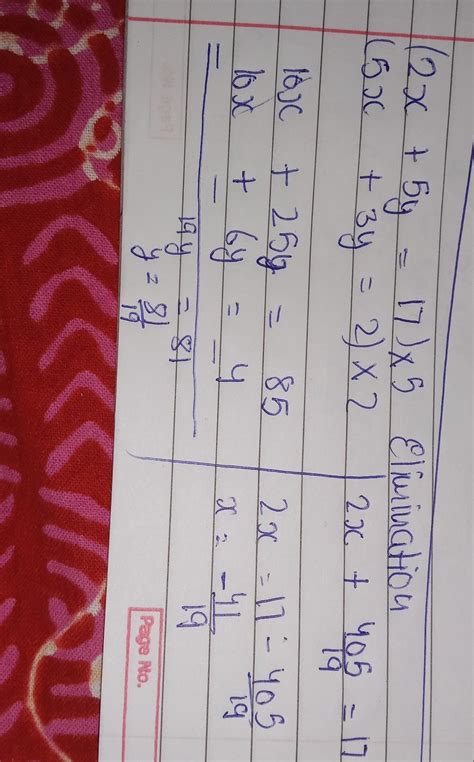 (2x + 5y = 17) × 5 Elimination
(5x + 3y = 2) × 2
10x + 25y = 85
10x + 6y = 4
= - -
19y = 81
y = 81/19
2x + 405/19 = 17
2x = 17 - 405/19
x = -41/19
Page No.